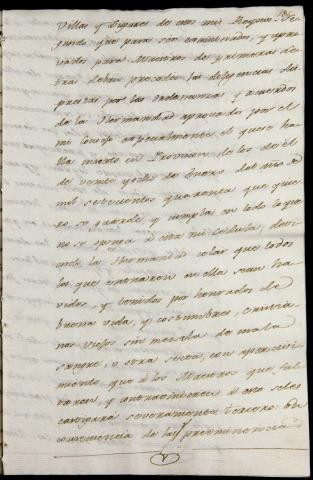 Villas y Lugares de estos mis Reynos. Se-
gundo: que para ser examinados, y apro-
vados para Maestros de primeras Le-
tras deban preceder las diligencias dis-
puestas por las ordenanzas, y acuerdos
de la Hermandad aprovados por el
mi Consejo especialmente el que se ha-
lla inserto en Provision de los de el
de veinte y ocho de Enero del año de
mil setecientos y quarenta que quie-
ro, se guarde, y cumpla en todo lo que
no se oponga a esta mi cedula, devi-
endo la Hermandad celar que todos
los que entraren en ella sean ha-
vidos, y tenidos por honrados de
buena vida, y costumbres, christia-
nos viejos sin mezcla de mala
sangre, u otra secta, con apercivi-
miento, que a los Maestros que fal-
taren, y contravinieren a esto se les
castigará severamente. Tercero: En
consecuencia de las preeminencias